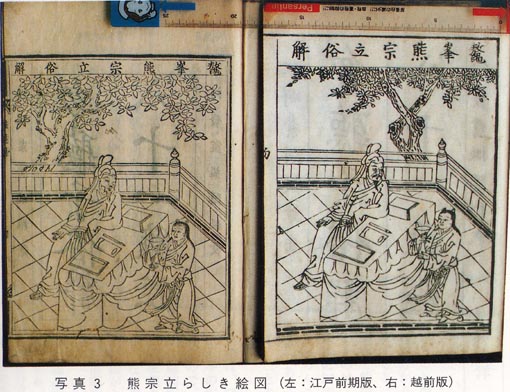 鼇峯熊宗立俗解
鼇峯熊宗立俗解
写真3　熊宗立らしき絵図（左：江戸前期版、右：越前版）